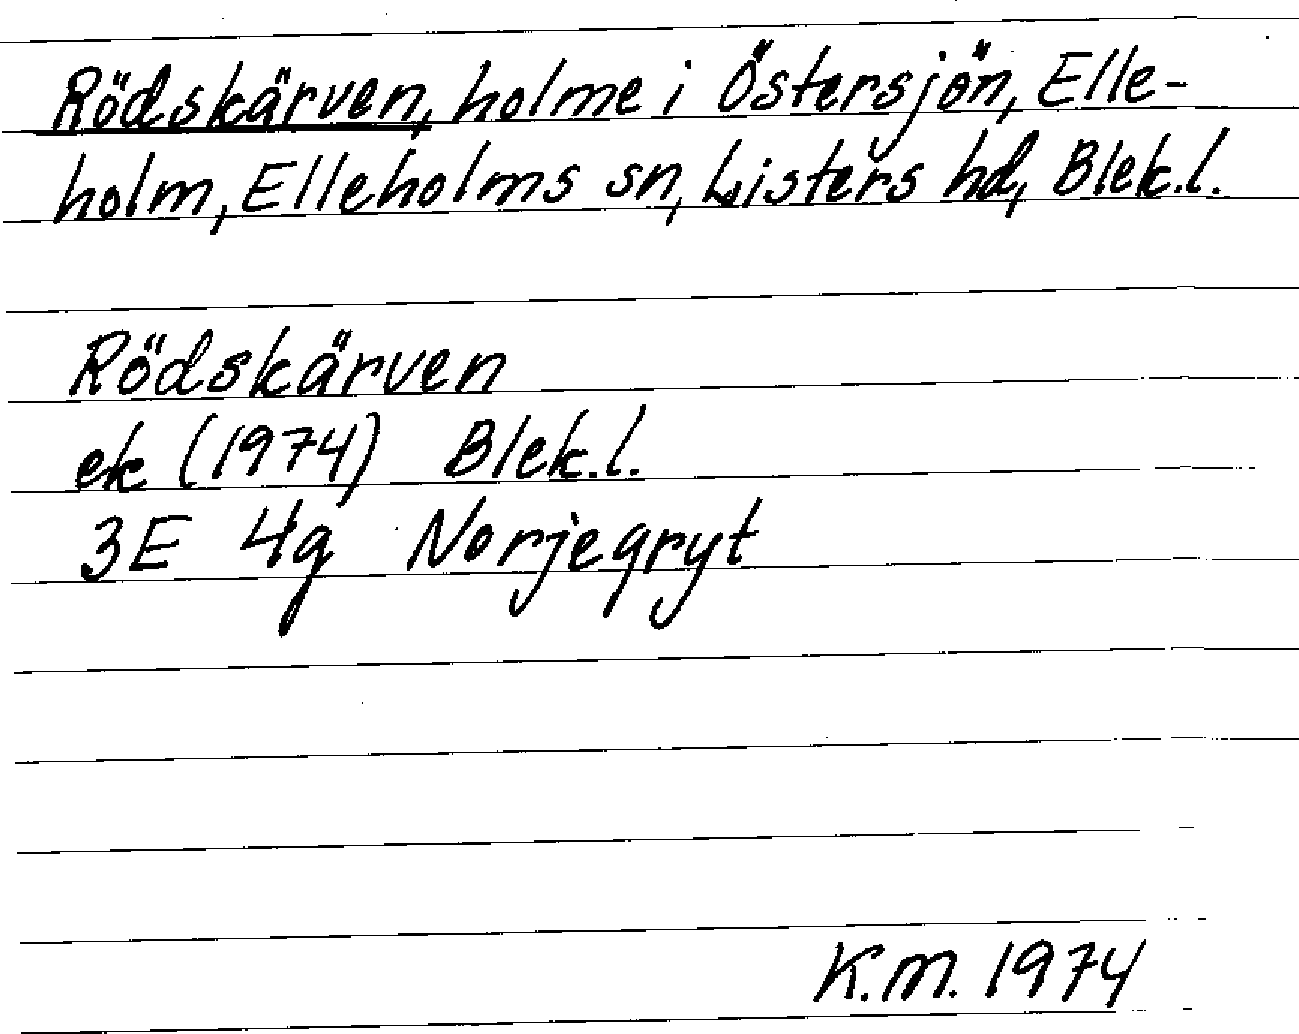 Rödskärven, holme i Östersjön, Elle-
holm, Elleholms sn, Listers hd, Blek.l.
Rödskärven
ek (1974) Blek.l.
3E 4g Norjegryt
K.M. 1974